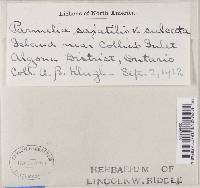 Lichens of North America.
Parmelia saxatilis v. sulcata
Island near Collins Inlet
Algoma District, Ontario
Coll. A. B. Klugh - Sept. 2, 1912
HERBARIUM OF
LINCOLN W. RIDDLE